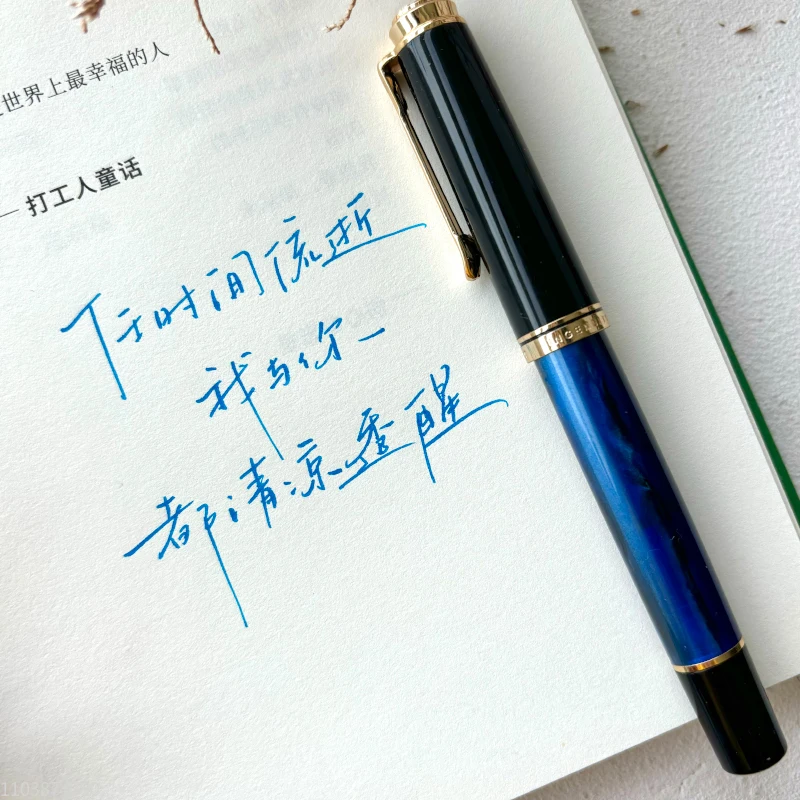 世界上最幸福的人
—打工人童话
于时间流逝
我与你
都清凉透醒